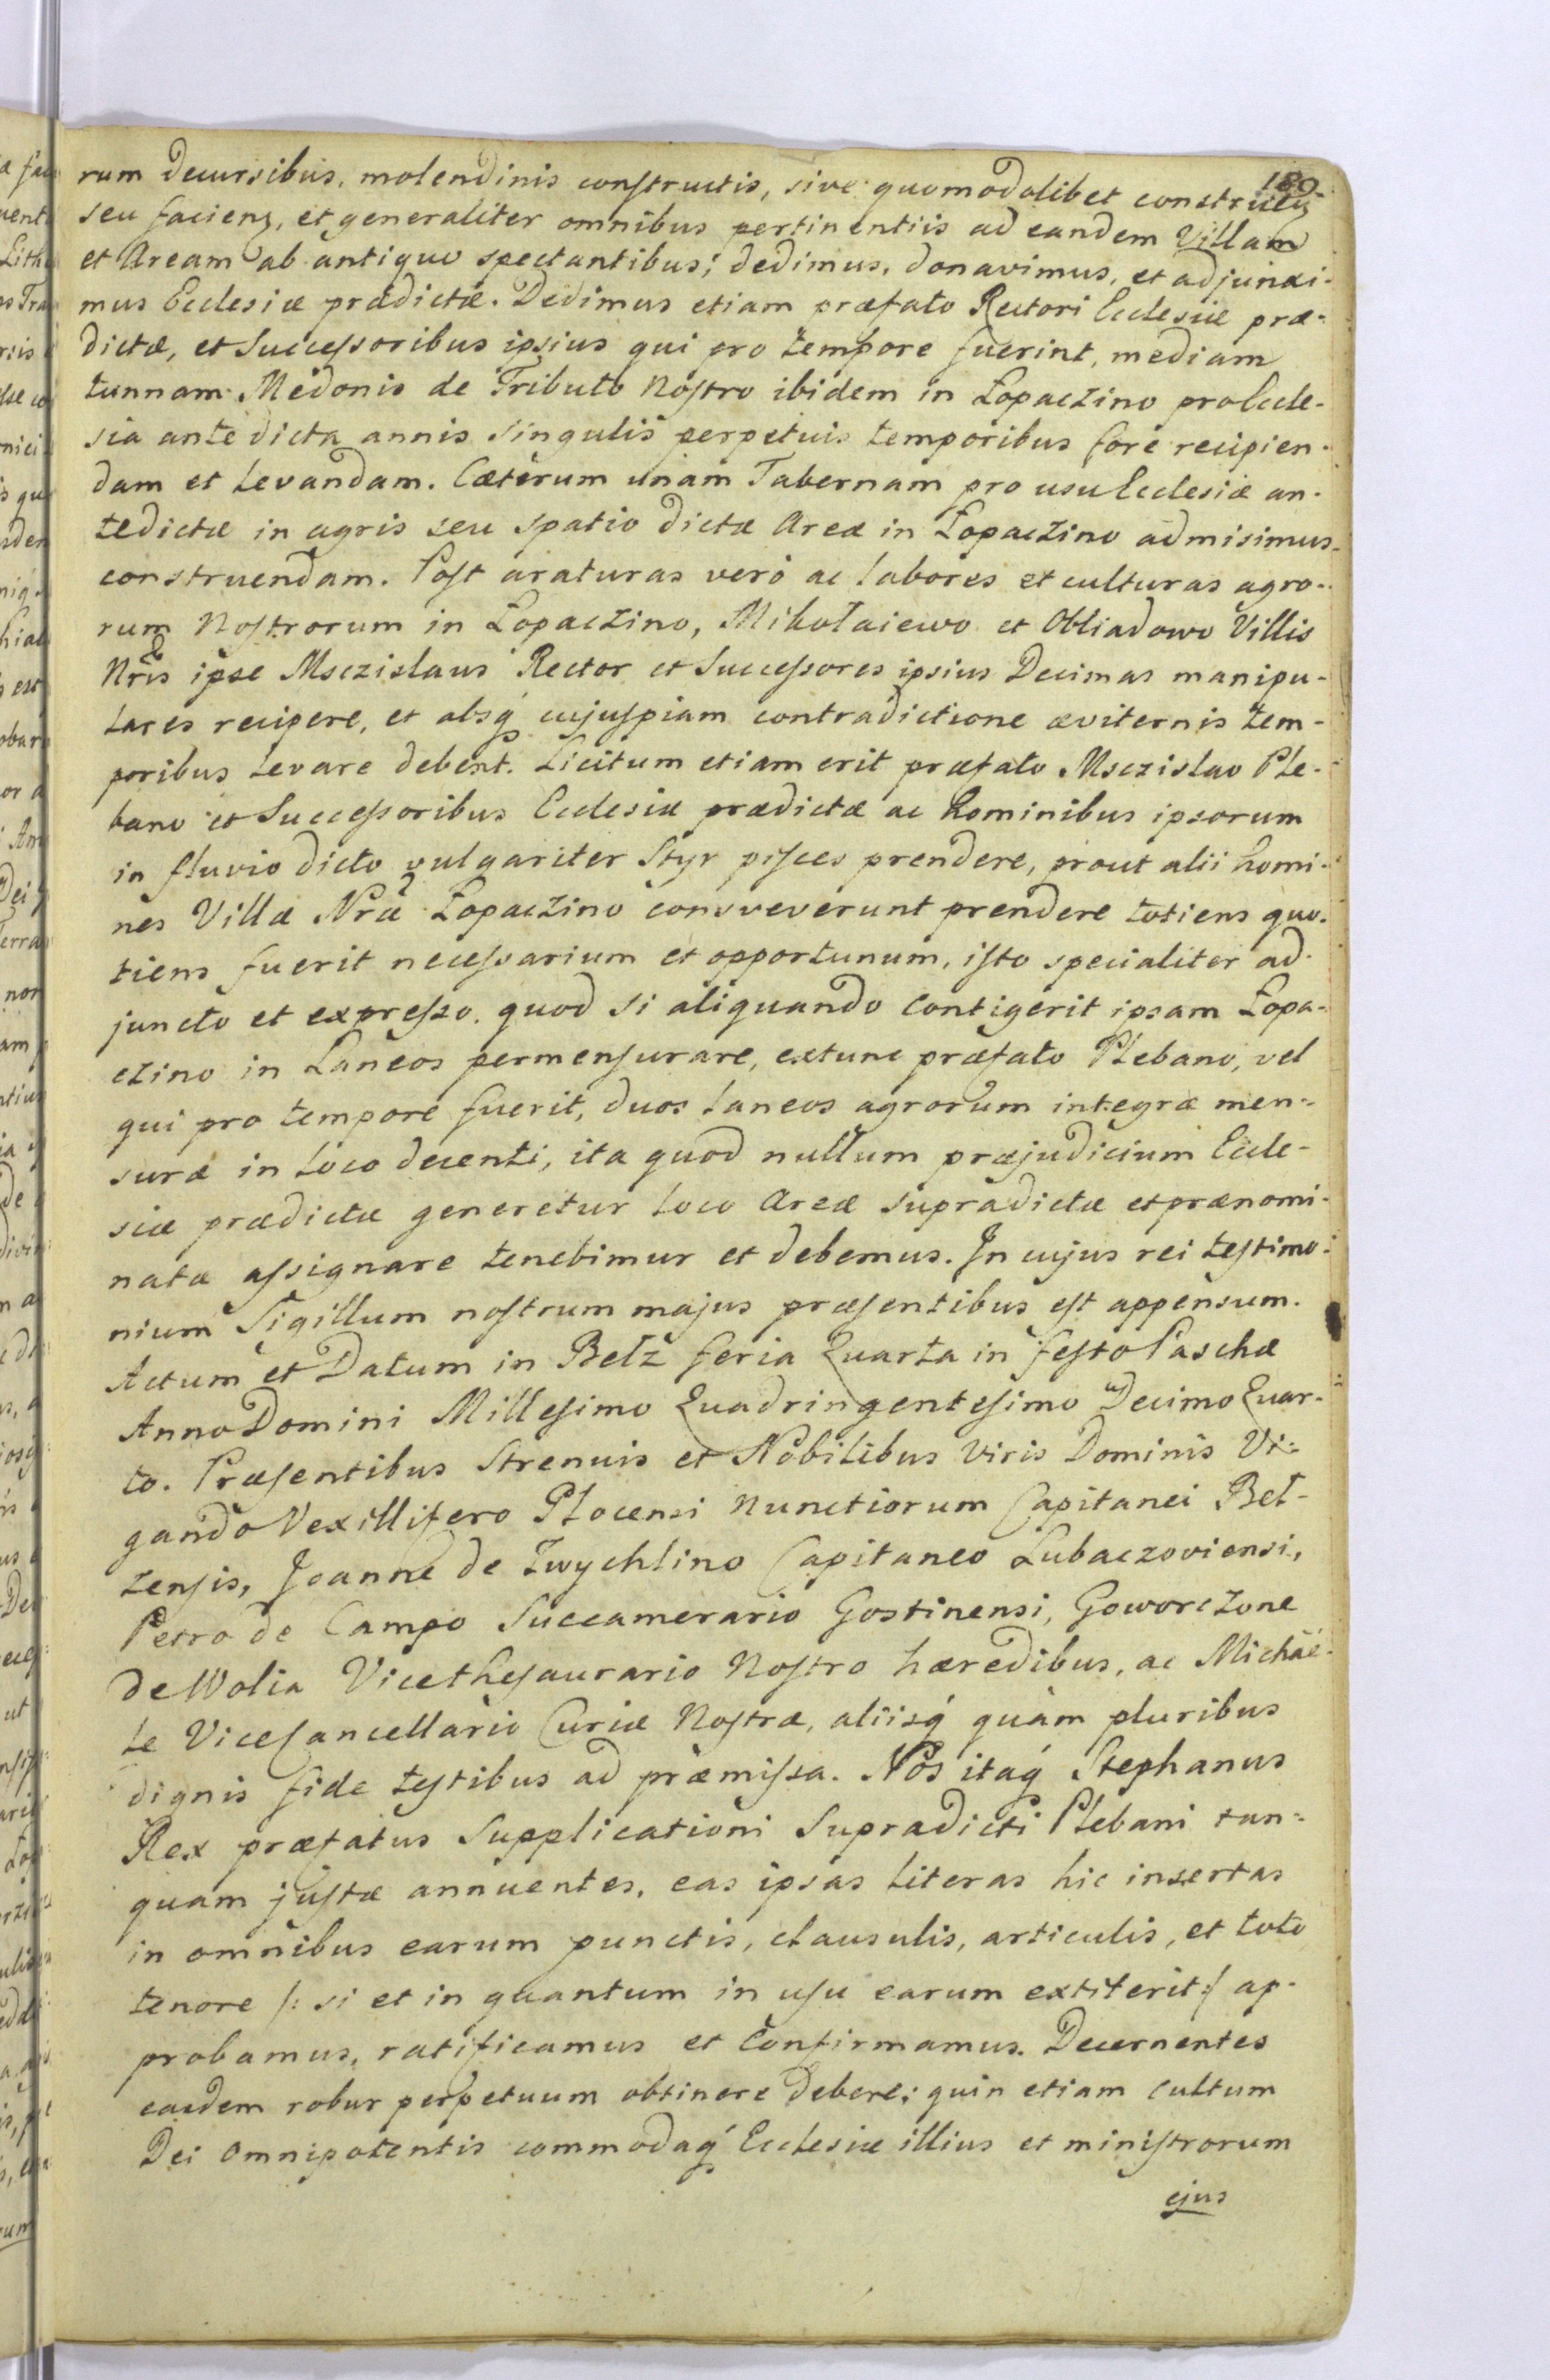 180
rum decursibus, molendinis constructis, sive quomodolibet construen.
seu facienẓ, et generaliter omnibus pertinentiis ad eandem Villam
et Aream ab antiquo spectantibus; dedimus, donavimus, et adjunxi-
mus Ecclesiæ prædictæ. Dedimus etiam præfato Rectori Ecclesiæ præ-
dictæ, et Successoribus ipsius qui pro tempore fuerint, mediam
tunnam Medonis de Tributo Nostro ibidem in Łopaczino pro Eccle-
sia ante dicta annis singulis perpetuis temporibus fore recipien-
dam et levandam. Cæterum unam Tabernam pro usu Ecclesiæ an-
tedictæ in agris seu spatio dictæ Areæ in Łopaczino admisimus
construendam. Post araturas verò ac labores et culturas agro-
rum Nostrorum in Łopaczino, Mikołaiewo et Obliadowo Villis
Nris ipse Msczislaus Rector et Successores ipsius Decimas manipu-
lares recipere, et absq́ cujuspiam contradictione æviternis tem-
poribus levare debent. Licitum etiam erit præfato Msczislao Ple-
bano et Successoribus Ecclesiæ prædictæ ac hominibus ipsorum
in fluvio dicto vulgariter Styr pisces prendere, prout alii homi-
nes Villæ Nræ Łopaczino consveverunt prendere totiens quo-
tiens fuerit necessarium et opportunum, isto specialiter ad-
juncto et expresso, quod si aliquando contigerit ipsam Łopa-
czino in Laneos permensurare, extunc præfato Plebano, vel
qui pro tempore fuerit, duos laneos agrorum integræ men-
suræ in loco decenti, ita quod nullum præjudicium Eccle-
siæ prædictæ generetur loco Areæ supradictæ et prænomi-
natæ assignare tenebimur et debemus. In cujus rei testimo-
nium Sigillum nostrum majus præsentibus est appensum.
Actum et Datum in Bełz feria Quarta in festo Paschæ
Anno Domini Millesimo Quadringentesimo Decimo Quar-
to. Præsentibus Strenuis et Nobilibus Viris Dominis Vi-
gando Vexillifero Plocensi Nunctiorum Capitanei Beł-
zensis, Joanne de Zwychlino Capitaneo Lubaczoviensi,
Petro de Campo Succamerario Gostinensi, Goworczone
de Wolia Vicethesaurario Nostro hæredibus, ac Michae-
le Vicecancellario Curiæ Nostræ, aliisq́ quàm pluribus
dignis fide testibus ad præmissa. Nos itaq́ Stephanus
Rex præfatus Supplicationi Supradicti Plebani tan-
quam justæ annuentes, eas ipsas literas hic insertas
in omnibus earum punctis, clausulis, articulis, et toto
tenore /: si et in quantum in usu earum extiterit :/ ap-
probamus, ratificamus et confirmamus. Decernentes
easdem robur perpetuum obtinere debere; quin etiam cultum
Dei Omnipotentis commodaq́ Ecclesiæ illius et ministrorum
ejus